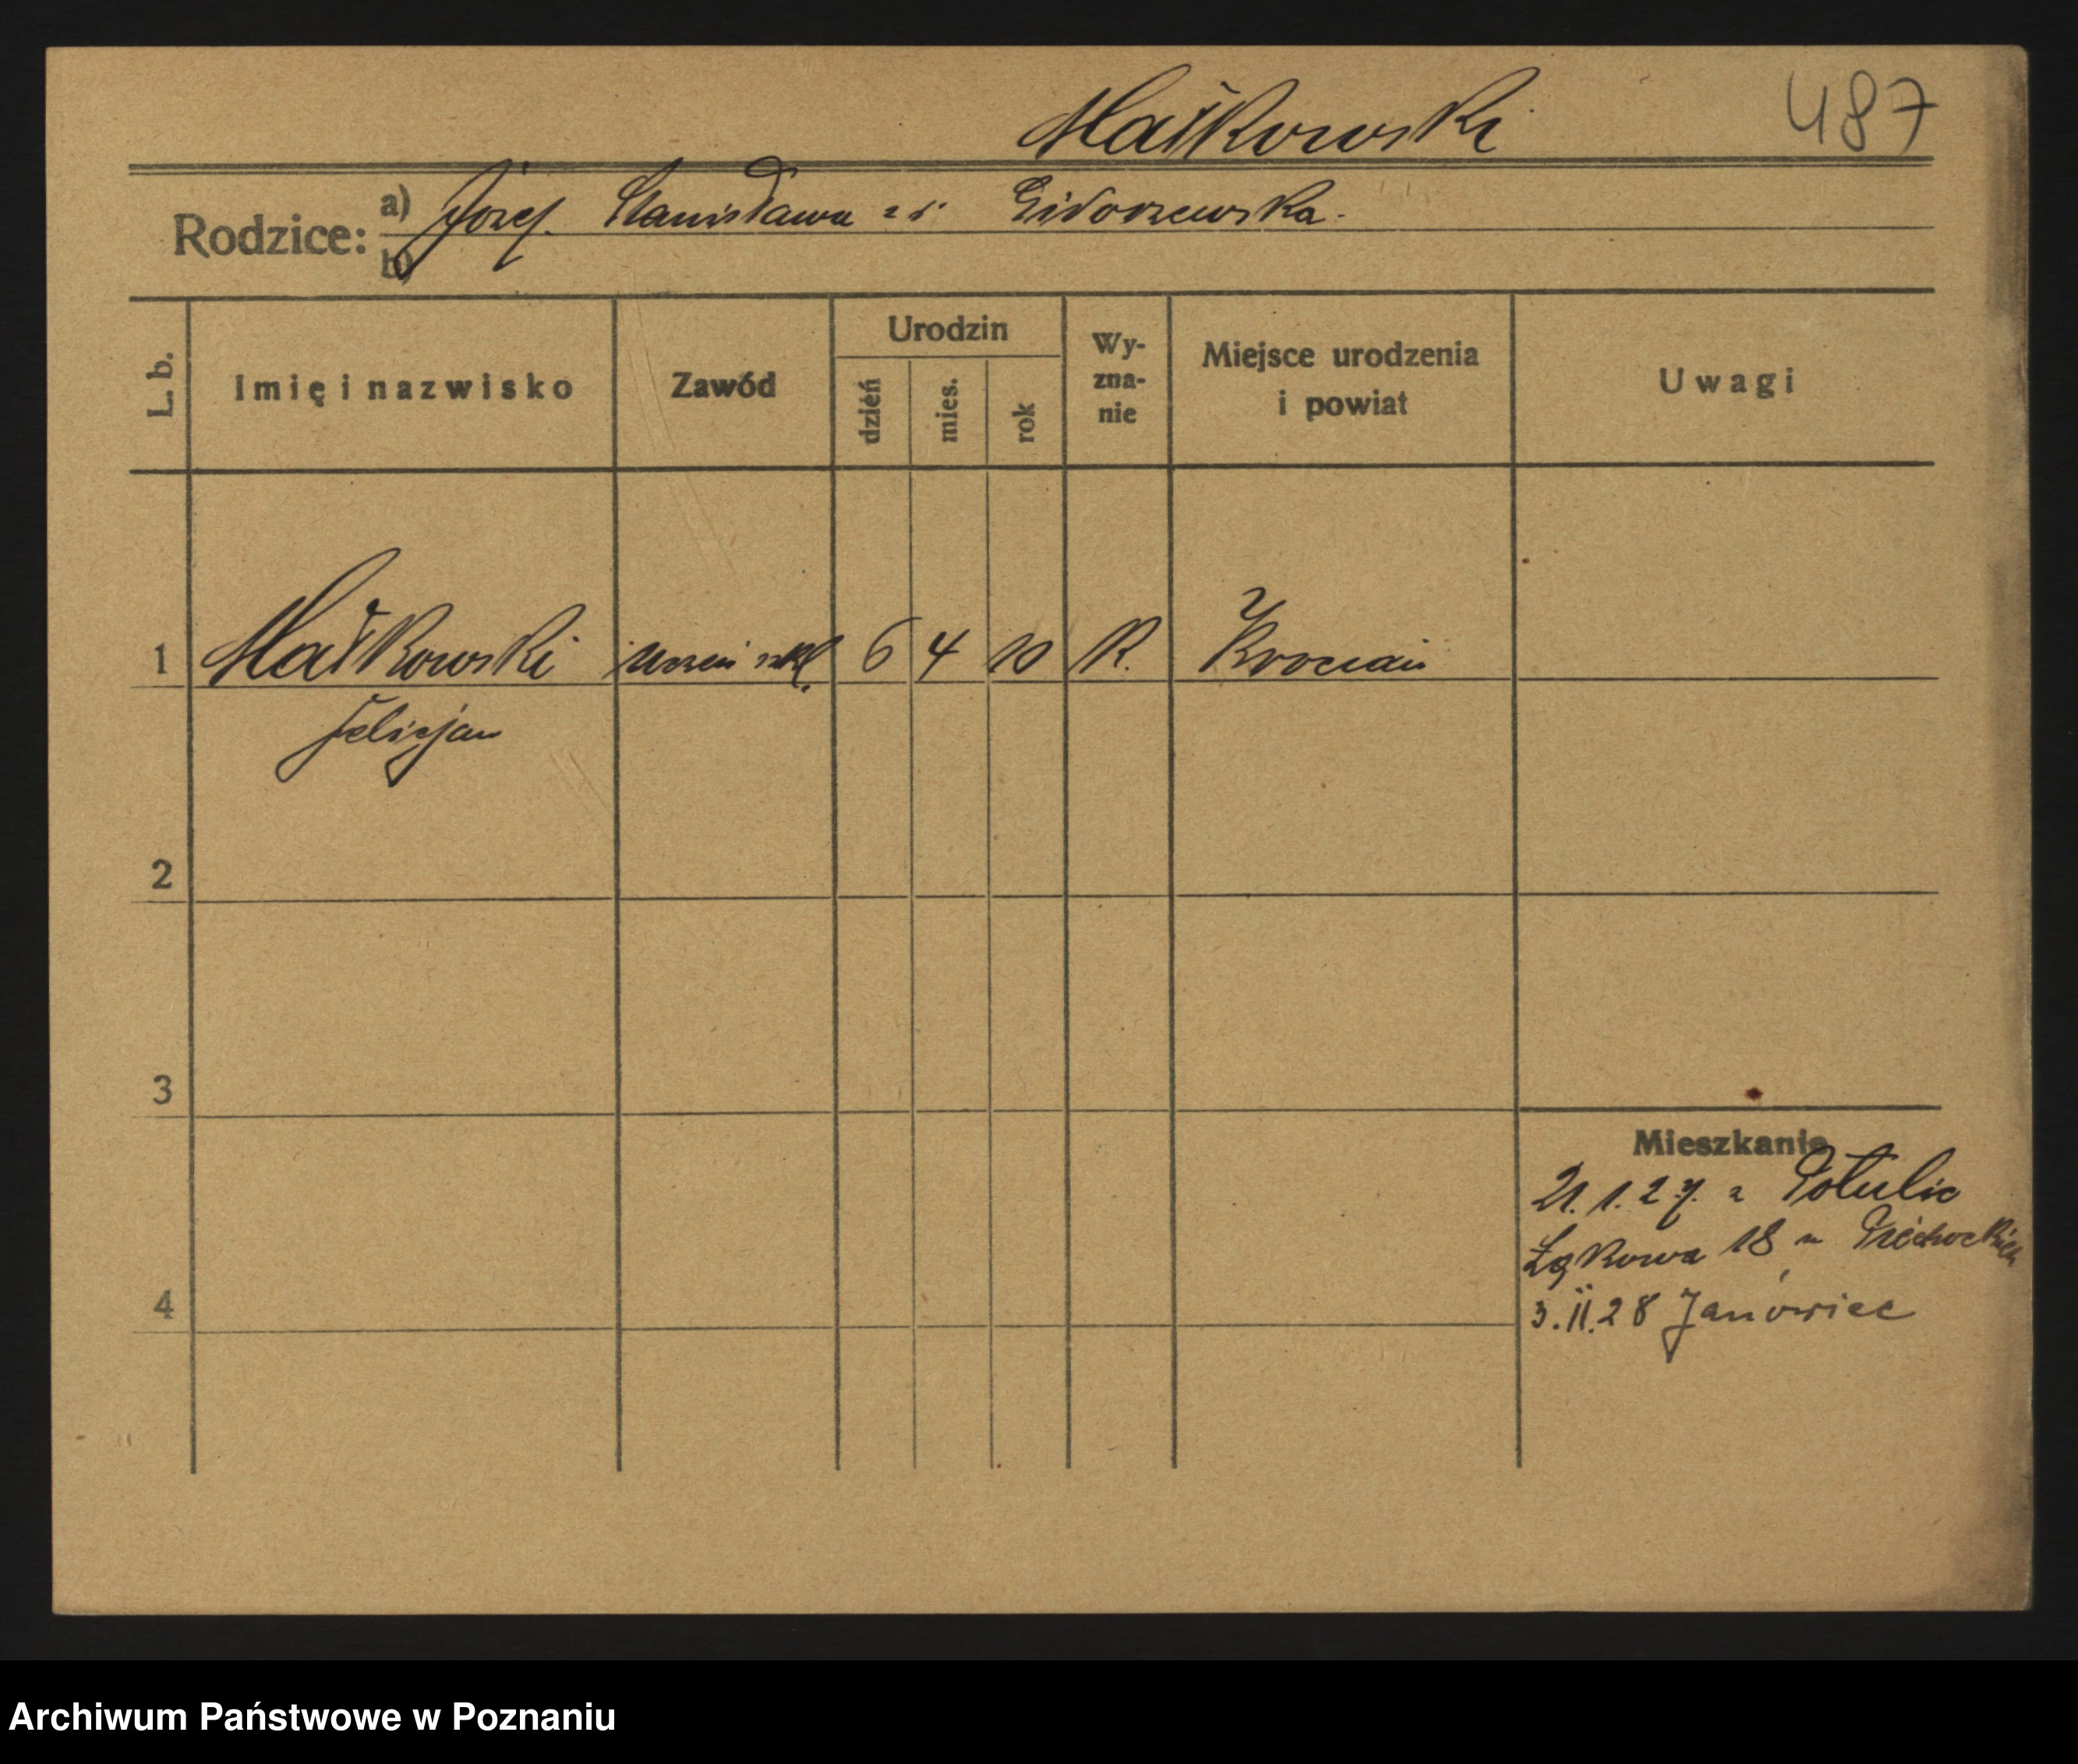 Małkowski
487
Rodzice: a) Józef. Stanisława z d.
b)
L. b. Imię i nazwisko Zawód Urodzin dzień mies. rok Wy-zna-nie Miejsce urodzenia i powiat Uwagi
1 Małkowski uczeń szkł. 6 4 10 R.
Felicjan
2
3
Mieszkanie
21.1.27. z Potulic
Łąkowa 18 u
4
3.II.28 Janówiec
Archiwum Państwowe w Poznaniu